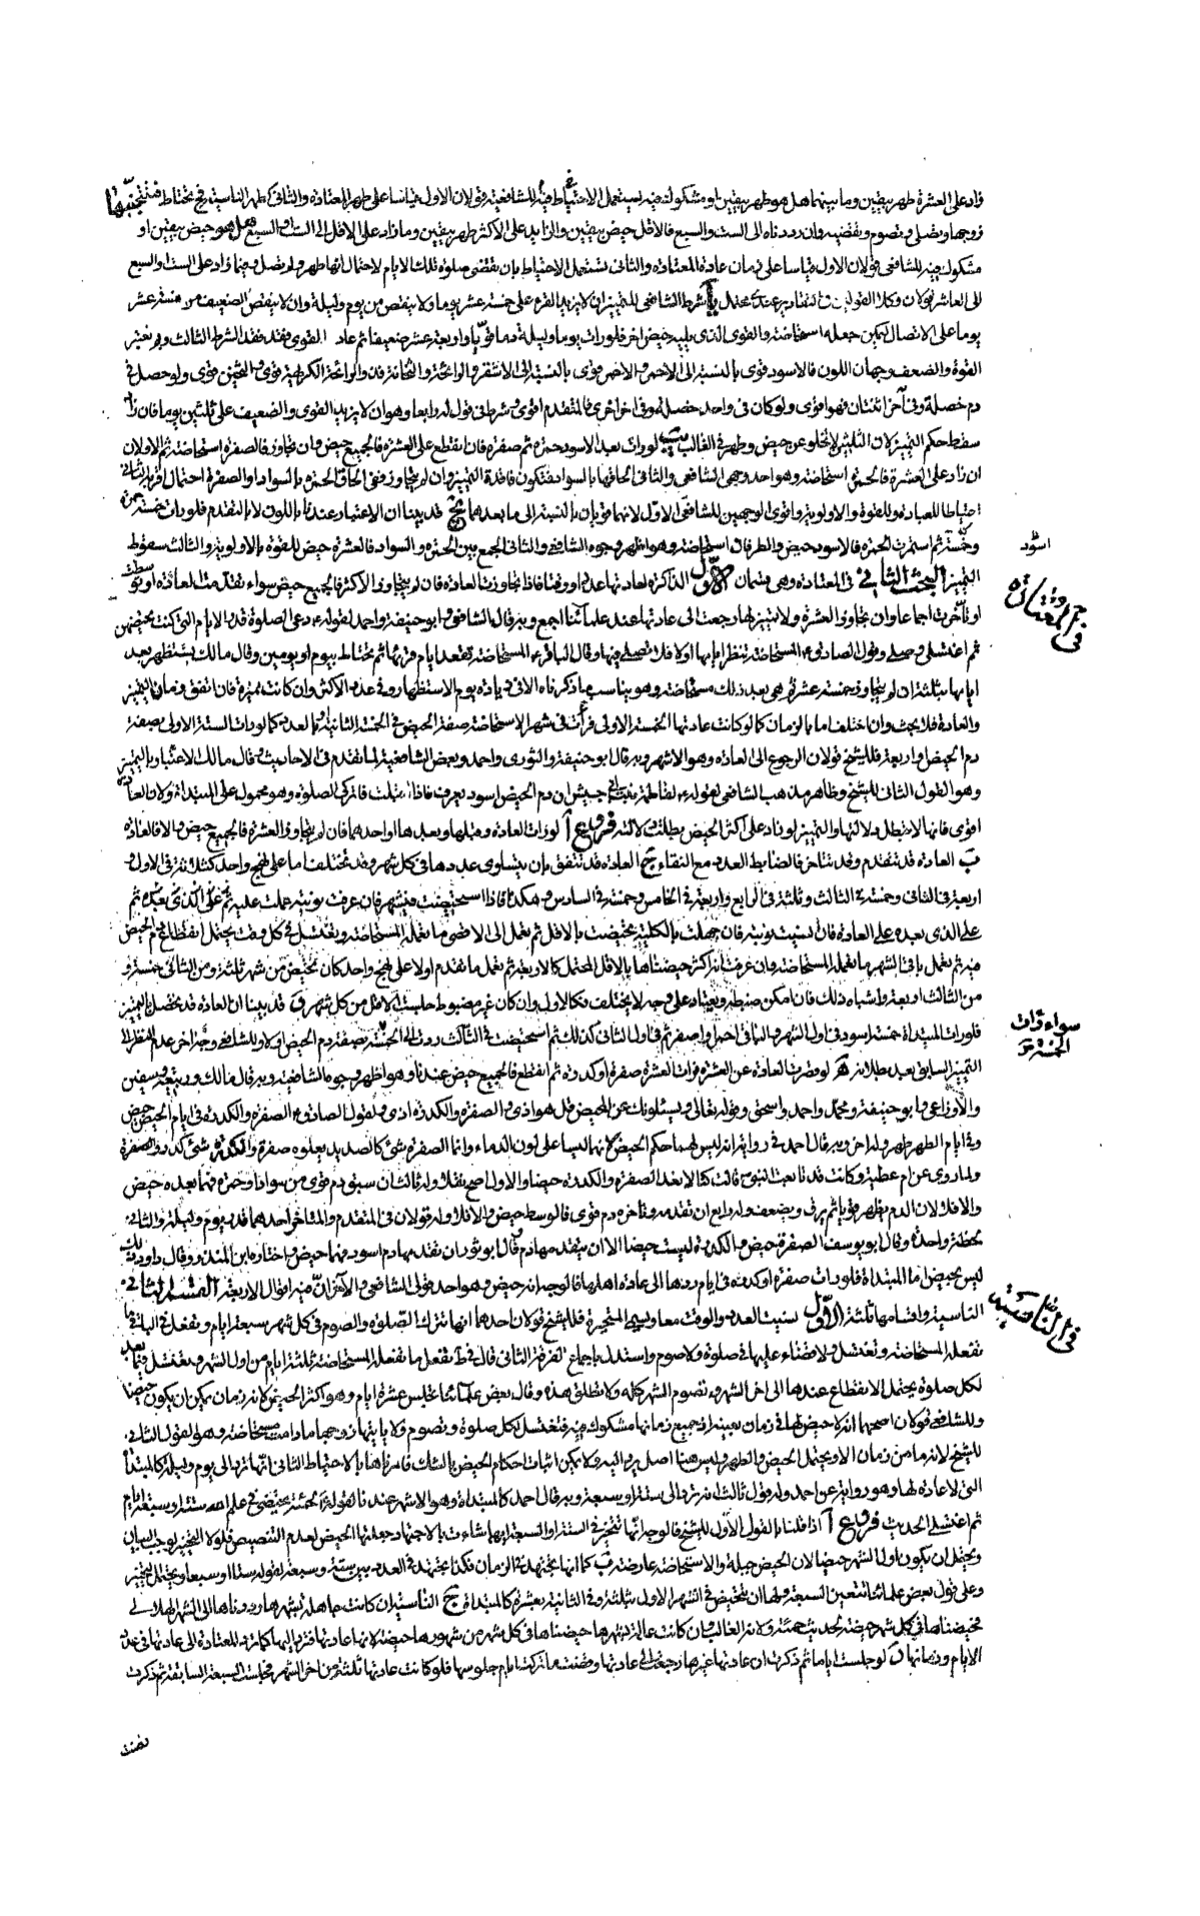 زاد على العشرة طهر بيقين وما بينهما هل هو طهر بيقين او مشكوك فيه يستعمل الاحتياط فيه للشافعية قولان الاول قياسا على طهر المعتادة والثاني كطهر الناسية فح تحتاط فيتجنبها
زوجها وتصلي وتصوم وتقضيه وان رددناه الى الست والسبع فالاقل حيض بيقين والزايد على الاكثر طهر بيقين وما زاد على الاقل الى الست او السبع هل هو حيض بيقين او
مشكوك فيه للشافعي قولان الاول قياسا على زمان عادة المعتادة والثاني تستعمل الاحتياط بان تقضي صلوة تلك الايام لاحتمال انها طهر ولم تصل وفيما زاد على الست او السبع
الى العاشر قولان وكلا القولين عندي محتمل شرط الشافعي للتمييز ان لا يزيد الدم على خمسة عشر يوما ولا ينقص من يوم وليلة وان لا ينقص الضعيف من خمسة عشر
يوما على الاتصال ليمكن جعله استحاضة والقوي الذي يليه حيض اخر فلو رات يوما وليلة دما قويا واربعة عشر ضعيفا ثم عاد القوي فقد فقد الشرط الثالث ويعتبر
القوة والضعف وجهان اللون فالاسود قوي بالنسبة الى الاحمر والاحمر قوي بالنسبة الى الاشقر والرائحة والثخانة فان الرائحة الكريهة قوي والثخين قوي ولو حصل في
دم خصلة وفي آخر اثنتان فهو اقوى ولو كان في واحد خصلة وفي اخر اخرى فالمتقدم اقوى وشرط في قول له رابعا وهو ان لا يزيد القوي والضعيف على ثلثين يوما فان زاد
سقط حكم التمييز لان الثلثين لا تخلو عن حيض وطهر في الغالب لو رات بعد الاسود حمرة ثم صفرة فان انقطع على العشرة فالجميع حيض وان تجاوز فالصفرة استحاضة ثم الاولان
ان زاد على العشرة فالحمرة استحاضة وهو احد وجهي الشافعي والثاني الحاقها بالسواد فتكون فاقدة التمييز وان لم يتجاوز ففي الحاق الحمرة بالسواد او الصفرة احتمال اقربه الثاني
احتياطا للعبادة وللقوة والاولوية واقوى الوجهين للشافعي الاول لانهما قويان بالنسبة الى ما بعدهما قد بينا ان الاعتبار عندنا باللون لا بالتقدم فلو رات خمسة حمرة
وخمسة ثم استمرت الحمرة فالاسود حيض والطرفان استحاضة وهو اظهر وجوه الشافعي والثاني الجمع بين الحمرة والسواد فالعشرة حيض للقوة بالاولوية والثالث سقوط
التمييز البحث الثاني في المعتادة وهي قسمان الاول الذاكرة لعادتها عددا ووقتا فاذا تجاوزت العادة فان لم يتجاوز الاكثر فالجميع حيض سواء تقدمت العادة او توسطت
او تأخرت اجماعا وان تجاوز العشرة ولا تمييز لها رجعت الى عادتها عند علمائنا اجمع وبه قال الشافعي وابو حنيفة واحمد لقوله ع دعي الصلوة قدر الايام التي كنت تحيضين
ثم اغتسلي وصلي وقول الصادق ع المستحاضة تنظر ايامها اولا فلا تصلي فيها وقال الباقر ع المستحاضة تقعد ايام قرئها ثم تحتاط بيوم او يومين وقال مالك تستظهر بعد
ايامها بثلثة ان لم يتجاوز خمسة عشر ثم هي بعد ذلك مستحاضة وهو يناسب ما ذكرناه الا في زيادة يوم الاستظهار وفي عدد الاكثر وان كانت مميزة فان اتفق زمان التمييز
والعادة فلا بحث وان اختلف اما بالزمان كما لو كانت عادتها الخمسة الاولى فرأت في شهر الاستحاضة صفة الحيض في الخمسة الثانية او بالعدد كما لو رات الستة الاولى بصفة
دم الحيض او اربعة فللشيخ قولان الرجوع الى العادة وهو الاشهر وبه قال ابو حنيفة والثوري واحمد وبعض الشافعية لما تقدم في الاحاديث وقال مالك الاعتبار بالتمييز
وهو القول الثاني للشيخ وظاهر مذهب الشافعي لقوله ع لفاطمة بنت ابي حبيش ان دم الحيض اسود يعرف فاذا اقبلت فاتركي الصلوة وهو محمول على المبتدأة ولان العادة
اقوى فانها لا تبطل دلالتها والتمييز لو زاد على اكثر الحيض بطلت دلالته فروع أ لو رات العادة وقبلها وبعدها او احدهما فان لم يتجاوز العشرة فالجميع حيض والا فالعادة
ب العادة قد تتقدم وقد تتاخر فالضابط العدد مع النقاء ج العادة قد تتفق بان يتساوى عددها في كل شهر وقد تختلف اما على نهج واحد كثلاثة في الاول
اربعة في الثاني وخمسة في الثالث وثلثة في الرابع واربعة في الخامس وخمسة في السادس وهكذا فاذا استحيضت في شهر فان عرفت نوبته عملت عليه ثم على الذي بعده ثم
على الذي بعده على العادة فان نسيت نوبته فان جهلت بالكلية تحيضت بالاقل ثم تعمل الى الاقصى ما تعمله المستحاضة وتغتسل في كل وقت يحتمل انقطاع دم الحيض
فيه ثم تعمل باقي الشهر ما تعمله المستحاضة وان عرفت انه اكثر حيضناها بالاقل المحتمل كالاربعة ثم تعمل ما تقدم او لا على نهج واحد كان تحيض من شهر ثلثة ومن الثاني خمسة و
من الثالث اربعة واشباه ذلك فان امكن ضبطه ويعتاد على وجه لا يختلف فكالاول وان كان غير مضبوط جلست الاقل من كل شهر د قد بينا ان العادة قد تحصل بالتمييز
فلو رات المبتدأة خمسة اسود في اول الشهر والباقي احمر او اصفر ثم في اول الثاني كذلك ثم استحيضت في الثالث ردت الى الخمسة بصفة دم الحيض او لا وللشافعي وجه آخر عدم النظر الى
التمييز السابق بعد بطلانه ه لو مضت العادة عن العشرة فرات العشرة صفرة او كدرة ثم انقطع فالجميع حيض عندنا وهو اظهر وجوه الشافعية وبه قال مالك وربيعة وسفين
والاوزاعي وابو حنيفة ومحمد واحمد واسحق وقوله تعالى ويسئلونك عن المحيض قل هو اذى والصفرة والكدرة اذى ولقول الصادق ع الصفرة والكدرة في ايام الحيض حيض
وفي ايام الطهر طهر وله اخر وبه قال احمد في رواية انه ليس لهما حكم الحيض لانهما ليسا على لون الدماء وانما الصفرة شئ كالصديد يعلوه صفرة والكدرة شئ كدر والصفرة
ولما روي عن ام عطية وكانت قد بايعت النبي ص قالت كنا لا نعد الصفرة والكدرة حيضا والاول اصح نقلا وله ثالث ان سبق دم قوي من سواد او حمرة فهما بعده حيض
والا فلا لان الدم يظهر قويا ثم يرق ويضعف وله رابع ان تقدمه وتأخره دم قوي فالوسط حيض والا فلا وله قولان في المتقدم والمتاخر احدهما قدر يوم وليلة والثاني
لحظة واحدة وقال ابو يوسف الصفرة حيض والكدرة ليست حيضا الا ان يتقدمها دم وقال ابو ثور ان تقدمهما دم اسود فهما حيض واختاره ابن المنذر وقال داود ذلك
ليس بحيض اما المبتدأة فلو رات صفرة او كدرة في ايام ردها الى عادة اهلها فالوجه انه حيض وهو احد قولي الشافعي والآخر ان فيه اقوال الاربعة القسم الثاني
الناسية واقسامها ثلثة الاول نسيت العدد والوقت معا ويسمى المتحيرة فللشيخ قولان احدهما انها تترك الصلوة والصوم في كل شهر سبعة ايام وتفعل في الباقي ما
تفعله المستحاضة وتغتسل ولا قضاء عليها في صلوة ولا صوم واستدل باجماع الفرقة الثاني قال في ط تفعل ما تفعله المستحاضة ثلثة ايام من اول الشهر وتغتسل فيما بعد
لكل صلوة يحتمل الانقطاع عندها الى اخر الشهر وتصوم الشهر كله ولا تطلق هذه وقال بعض علمائنا تجلس عشرة ايام وهو اكثر الحيض لانه زمان يمكن ان يكون حيضا
وللشافعي قولان اصحهما انه لا حيض لها في زمان بعينه اذ جميع زمانها مشكوك فيه فتغتسل لكل صلوة وتصوم ولا ياتيها زوجها ما دامت مستحاضة وهو القول الثاني
للشيخ لانه ما من زمان الا ويحتمل الحيض والطهر وليس هنا اصل يرد اليه ولا يمكن اثبات احكام الحيض بالشك فامرناها بالاحتياط الثاني انها ترد الى يوم وليلة كالمبتدأة
التي لا عادة لها وهو رواية عن احمد وله قول ثالث انه ترد الى ستة او سبعة وبه قال احمد كالمبتداة وهو الاشهر عندنا لقوله لحمنة تحيضي في علم الله ستة او سبعة ايام
ثم اغتسلي الحديث فروع أ اذا قلنا بالقول الاول للشيخ فالوجه انها تتخير في الستة او السبعة ايهما شاءت بالاجتهاد جعلتها الحيض لعدم التنصيص فلولا التخيير لوجب البيان
ويحتمل ان يكون اول الشهر حيضا لان الحيض جبلة والاستحاضة عارضة ب كما انها تجتهد في الزمان فكذا تجتهد في العدد بين ستة وسبعة لقوله ستا او سبعا ويحتمل التخيير
وعلى قول بعض علمائنا تتعين السبعة ولها ان تتحيض في الشهر الاول بثلثة وفي الثانية بعشرة كالمبتداة ج الناسية ان كانت جاهلة بشهرها رددناها الى الشهر الهلالي
فحيضناها في كل شهر حيضة لحديث حمنة ولانه الغالب وان كانت عالمة بشهرها حيضناها في كل شهر من شهورها حيضة لانها عادتها فترد اليها كما ترد المعتادة الى عادتها في عدد
الايام وزمانها د لو جلست اياما ثم ذكرت ان عادتها غيرها رجعت الى عادتها وقضت ما تركت ايام جلوسها فلو كانت عادتها ثلثة من اخر الشهر فجلست السبعة السابقة ثم ذكرت
اسود
في المعتادة
سواء رات
الخمسة
في الناسية
قضت